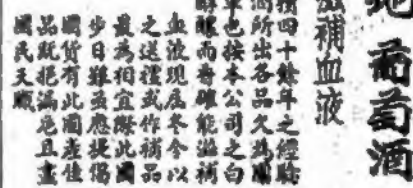 葡萄酒
補血液
積四十餘年之經驗
酒所出各品久為國
也按本公司之白
而壽確能滋補
血液現屆冬令以
之送禮或作補品
最為相宜際此國
步日難亟應提倡
國貨有此國產佳
品既挹漏卮且盡
國民天職